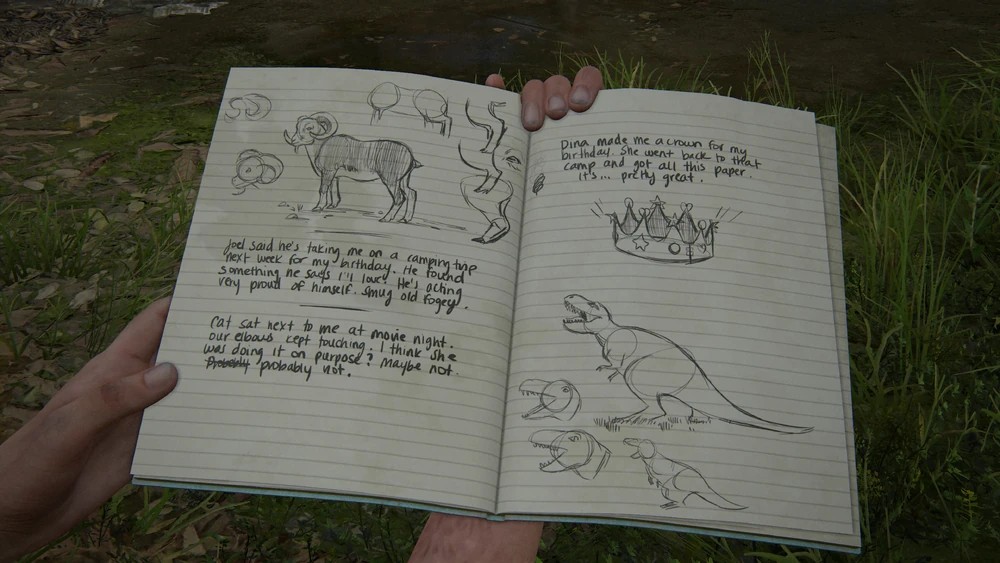 Joel said he's taking me on a camping trip
next week for my birthday. He found
something he says I'll love. He's acting
very proud of himself. Smug old fogey.
Cat sat next to me at movie night.
our elbows cept touching. I think she
was doing it on purpose? Maybe not.
Probably probably not.
Dina made me a crown for my
birthday. She went back to that
camp and got all this paper.
It's... pretty great.